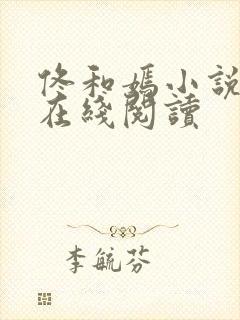 佟和媽小說
在綫閱讀
李毓芬